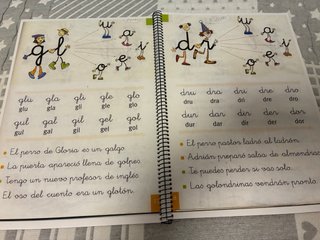 gl
u
a
i
o
e
glu gla gli gle glo
glu gla gli gle glo
gul gal gil gel gol
gul gal gil gel gol
El perro de Gloria es un galgo.
La puerta apareció llena de golpes.
Tengo un nuevo profesor de inglés.
El oso del cuento era un glotón.
dr
u
a
i
o
e
dru dra dri dre dro
dru dra dri dre dro
dur dar dir der dor
dur dar dir der dor
El perro pastor ladró al ladrón.
Adrián preparó salsa de almendras.
Te puedes perder si vas solo.
Las golondrinas vendrán pronto.